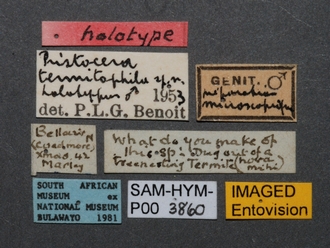 . holotype
Pristocera
termitophila sp.n.
holotypus ♂ 1953
det. P.L.G. Benoit
GENIT. ♂
preparatio
microscopica
Bellair, N
xmas, 42
Marley
What do you make of
this sp. Dug out of a
Treenesting Termite (nova
mihi)
SOUTH AFRICAN
MUSEUM ex
NATIONAL MUSEUM
BULAWAYO 1981
SAM-HYM-
P00 3860
IMAGED
Entovision